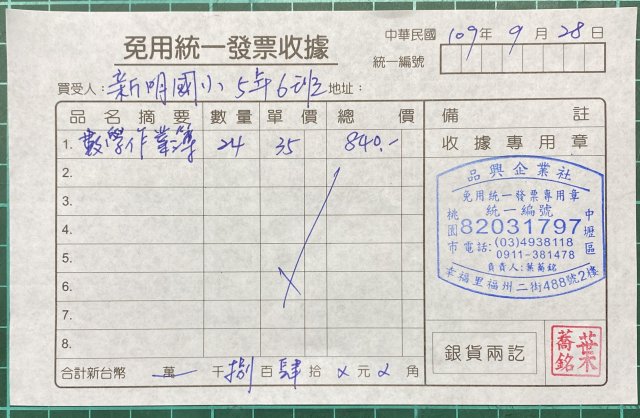 免用統一發票收據
中華民國 109年 9月 28日
統一編號
買受人：新明國小 5年6班 地址：
品名摘要 數量 單價 總價 備註
1. 數學作業簿 24 35 840.-
收據專用章
2.
3.
4.
5.
6.
7.
8.
品興企業社
免用統一發票專用章
統一編號
桃園市 82031797 中壢區
電話：(03)4938118
0911-381478
負責人：葉蕎銘
幸福里福州二街488號2樓
銀貨兩訖
葉蕎銘
合計新台幣 萬 千捌百肆拾 x 元 x 角